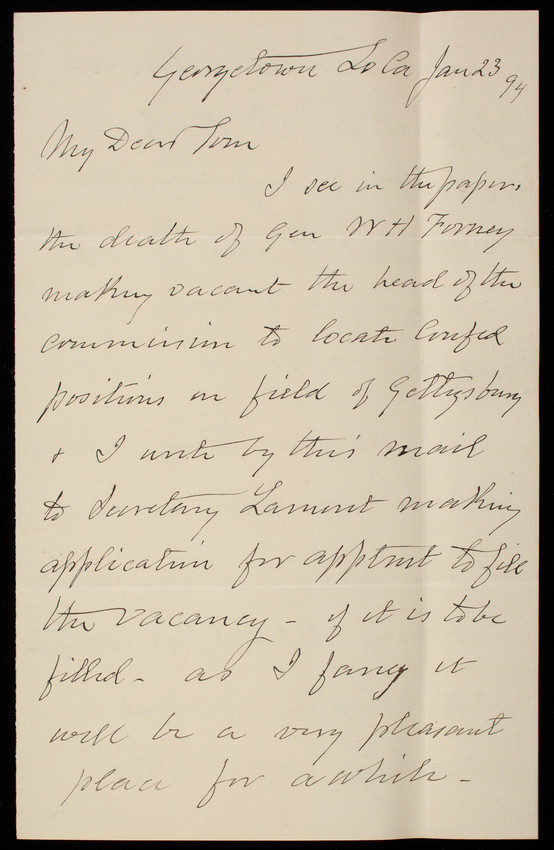 Georgetown So Ca Jan 23
94
My Dear Tom
I see in the papers
the death of Gen W H Forney
making vacant the head of the
commission to locate Confed
positions on field of Gettysburg
& I write by this mail
to Secretary Lamont making
application for apptmt to fill
the vacancy - if it is to be
filled - as I fancy it
will be a very pleasant
place for awhile -